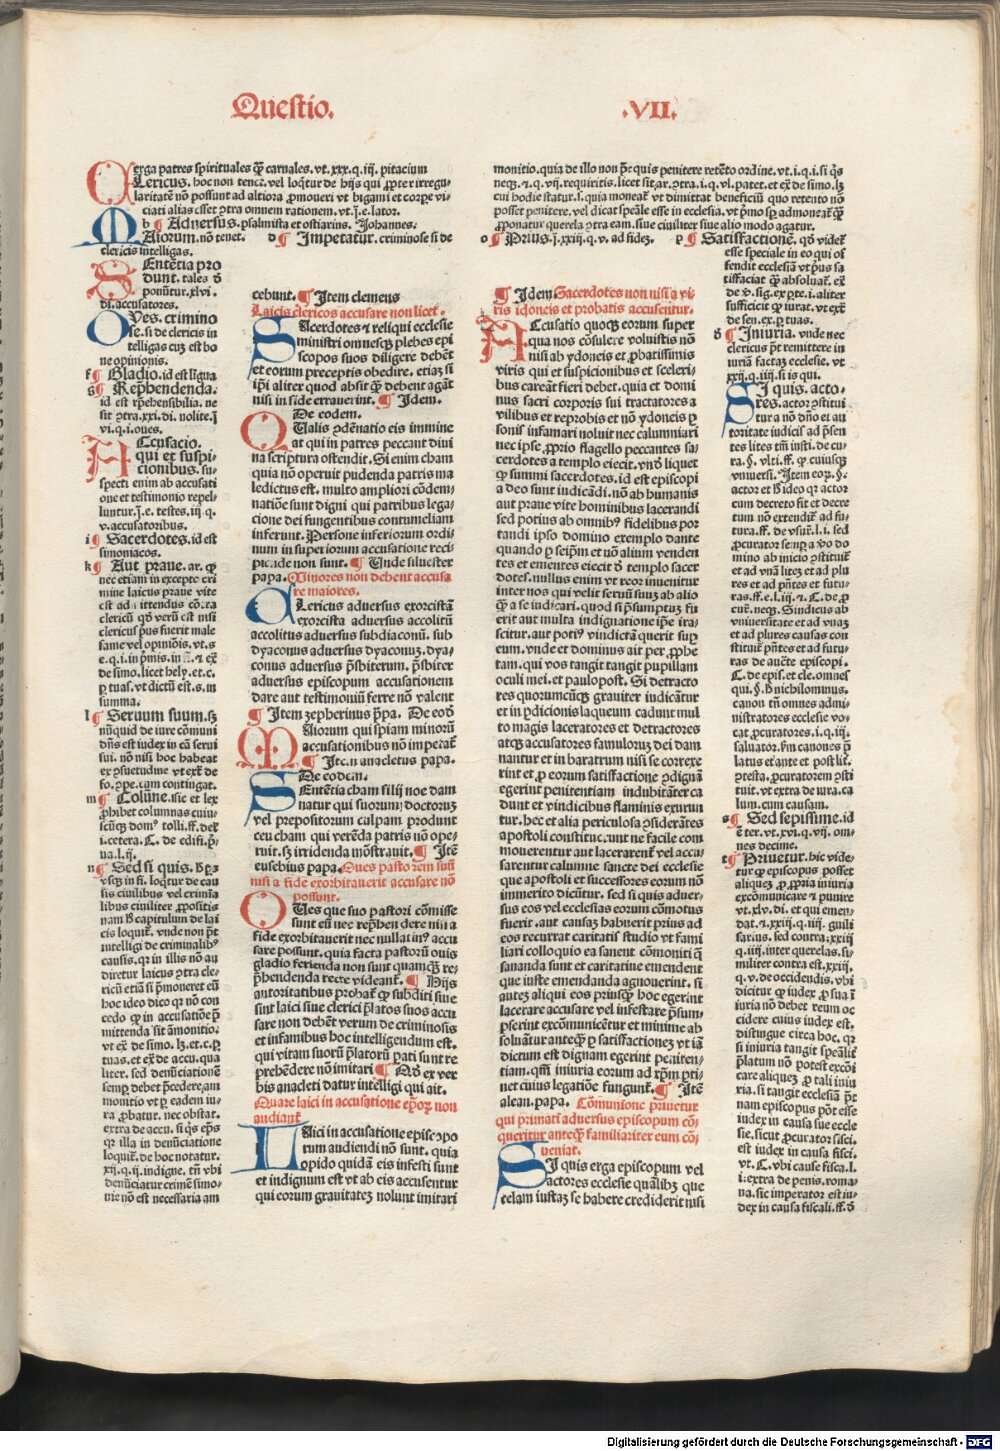 Questio.
.VII.
erga patres spirituales ꝙ̃ carnales. vt. xxx. q. iij. pitacium
Clericus. hoc non tenet. vel loqͥtur de hijs qui ꝓpter irregu-
laritatē nō possunt ad altiora ꝓmoueri vt bigami et corpe vi-
ciati alias esset ꝯtra omnem rationem. vt. j. e. lator.
b ¶ Aduersus. psalmista et ostiarius. Johannes.
Maiorum. nō tenet. d ¶ Impetatur. criminose si de
clericis intelligas.
Sentētia pro
dunt. tales ꝺ
ponūtur. xlvi.
di. accusatores.
Oues. crimino
se. si de clericis in
telligas cuꝫ est bo
ne opinionis.
f ¶ Gladio. id est lingua
g ¶ Rep̄hendenda.
id est rp̄hensibilia. ne
sit ꝯtra. xxi. di. nolite. j̄
vi. q. i. oues.
Accusacio.
qui ex suspi
cionibus. su-
specti enim ab accusati
one et testimonio repel-
luntur. j̄. e. testes. iij. q.
v. accusatoribus.
i ¶ Sacerdotes. id est
simoniacos.
k ¶ Aut praue. ar. ꝙ
nec etiam in excepto cri
mine laicus praue vite
est admittendus cōtra
clericū qd̄ verū est nisi
clericus prius fuerit male
fame vel opiniōis. vt. s
e. q. i. in p̄mis. in fi. ⁊ ex̄
de simo. licet hely. et. c.
ꝑ tuas. vt dictū est. s. in
summa.
l ¶ Seruum suum. sꝫ
nūquid de iure cōmuni
dn̄s est iudex in cā serui
sui. nō nisi hoc habeat
ex ꝯsuetudine vt ext̄ de
fo. ꝯpe. cum contingat.
m ¶ Colūne. sic et lex
ꝓhibet columnas cuiu-
scūqꝫ domꝰ tolli. ff. de ꝛ
i. cetera. C. de edifi. p̄-
ua. l. ij.
n ¶ Sed si quis. hᷓ p̄ꝫ
vsqꝫ in fi. loqͥtur de cau
sis ciuilibus vel crimīa
libus ciuiliter ꝓpositis
nam ꝑ capitulum de lai
cis loquit̄. vnde non p̄t
intelligi de criminalibꝰ
causis. qꝛ in illis nō au
diretur laicus ꝯtra cle-
ricū etiā si p̄moneret eū
hoc ideo dico qꝛ nō con
cedo ꝙ in accusatiōe p̄
mittenda sit āmonitio.
vt ex̄ de simo. lꝫ. et. c. ꝑ
tuas. et ex̄ de accu. qua
liter. sed denūciationē
semꝑ debet p̄cedere am
monitio vt ꝑ eadem iu-
ra ꝓbatur. nec obstat.
extra de accu. si qͥs ep̄s
qꝛ illa in denūciatione
loquit̄. de hoc notatur.
xij. q. ij. indigne. tn̄ vbi
denūciatur crimē simo-
nie nō est necessaria am
cebunt. ¶ Item clemens
Laicis clericos accusare non licet.
Sacerdotes ⁊ reliqui ecclesie
ministri omnesqꝫ plebes epi
scopos suos diligere debēt
et eorum preceptis obedire. etiaꝫ si
ip̄i aliter quod absit ꝙ debent agāt
nisi in fide errauerint. ¶ Idem.
De eodem.
Qualis ꝯdēnatio eis immine
at qui in patres peccant diui
na scriptura ostendit. Si enim cham
quia nō operuit pudenda patris ma
ledictus est. multo ampliori cōdem-
natiōe sunt digni qui patribus lega-
cione dei fungentibus contumeliam
inferunt. Persone inferiorum ordi-
num in superiorum accusatione reci
pi. ide non sunt. ¶ Unde siluester
papa. Minores non debent accusa
re maiores.
Clericus aduersus exorcistā
exorcista aduersus accolitū
accolitus aduersus subdiaconū. sub
dyaconus aduersus dyaconuꝫ. dya-
conus aduersus p̄sbiterum. p̄sbiter
aduersus episcopum accusationem
dare aut testimoniū ferre nō valent
¶ Item zepherinus p̄pa. De eodē
Maiorum qui spiam minorū
accusationibus nō imperat̄
¶ Itē.n anacletus papa.
De eodem.
Sentētia cham filij noe dam
natur qui suorum doctoruꝫ
vel prepositorum culpam produnt
ceu cham qui verēda patris nō ope-
ruit. sꝫ irridenda mōstrauit. ¶ Itē
eusebius papa. Oues pastorem suū
nisi a fide exorbitauerit accusare nō
possunt.
Oues que suo pastori cōmisse
sunt eū nec rep̄hendere nisi a
fide exorbitauerit nec nullatinꝰ accu
sare possunt. quia facta pastorū ouis
gladio ferienda non sunt quamqꝫ re-
p̄hendenda recte videant̄. ¶ Hijs
autoritatibus probat̄ ꝙ subditi siue
sint laici siue clerici p̄latos suos accu
sare non debēt verum de criminosis
et infamibus hoc intelligendum est.
qui vitam suorū p̄latorū ꝑati sunt re
prehēdere nō imitari ¶ Nō ex ver
bis anacleti datur intelligi qui ait.
Quare laici in accusatione ep̄oꝝ non
audiant̄
Laici in accusatione episcopo
rum audiendi nō sunt. quia
oppido quidā eis infesti sunt
et indignum est vt ab eis accusentur
qui eorum grauitateꝫ nolunt imitari
monitio. quia de illo non p̄t quis penitere retēto ordine. vt. i. q. i. si qͥs
neqꝫ. ⁊ q. vij. requiritis. licet sit ar. ꝯtra. i. q. vl. patet. et ex̄ de simo. lꝫ
cui hodie statur. s. quia moneat̄ vt dimittat beneficiū quo retento nō
posset penitere. vel dicat speāle esse in ecclesia. vt p̄mo sꝑ admoneat̄ ꝙ̃
ꝓponatur querela ꝯtra eam. siue ciuiliter siue alio modo agatur.
o ¶ Prius. j. xxiij. q. v. ad fideꝫ. p ¶ Satisfactionē. qd̄ videt̄
esse speciale in eo qui of
fendit ecclesiā vt prius sa
tisfaciat ꝙ̃ absoluat̄. ex̄
de v̄. sig. ex ꝑte. i. aliter
sufficit ꝙ iurat. vt ext̄
de sen. ex. ꝑ tuas.
¶ Idem. Sacerdotes non nisi a vi-
ris idoneis et probatis accusentur.
Accusatio quoqꝫ eorum super
qua nos cōsulere voluistis nō
nisi ab ydoneis et ꝓbatissimis
viris qui et suspicionibus et sceleri-
bus careāt fieri debet. quia et domi
nus sacri corporis sui tractatores a
vilibus et reprobis et nō ydoneis ꝑ
sonis infamari noluit nec calumniari
nec ipse ꝓprio flagello peccantes sa-
cerdotes a templo eiecit. vnō liquet
ꝙ summi sacerdotes. id est episcopi
a deo sunt iudicādi. nō ab humanis
aut praue vite hominibus lacerandi
sed potius ab omnibꝰ fidelibus por
tandi ipso domino exemplo dante
quando ꝑ seip̄m et nō alium venden
tes et ementes eiecit ꝺ templo sacer
dotes. nullus enim vt reor inuenitur
inter nos qui velit seruū suuꝫ ab alio
ꝙ̃ a se iudicari. quod si p̄sumptuꝫ fu
erit aut multa indignatione ip̄e ira-
scitur. aut potiꝰ vindictā querit suꝑ
eum. vnde et dominus ait per ꝓphe
tam. qui vos tangit tangit pupillam
oculi mei. et paulopost. Si detracto
res quorumcūqꝫ grauiter iudicātur
et in ꝑdicionis laqueum cadunt mul
to magis laceratores et detractores
atqꝫ accusatores famuloruꝫ dei dam
nantur et in baratrum nisi se correxe
rint et ꝑ eorum satisfactione ꝯdignā
egerint penitentiam indubitāter ca
dunt et vindicibus flaminis exurun
tur. hec et alia periculosa ꝯsiderātes
apostoli constituc.unt ne facile com
mouerentur aut lacerarent̄ vel accu-
sarentur calumne sancte dei ecclesie
que apostoli et successores eorum nō
immerito dicūtur. sed si quis aduer-
sus eos vel ecclesias eorum cōmotus
fuerit. aut causaꝫ habuerit prius ad
eos recurrat caritatis studio vt fami
liari colloquio ea sanent cōmoniti ꝗ
sananda sunt et caritatiue emendent
que iuste emendanda agnouerint. si
auteꝫ aliqui eos priusqꝫ̃ hoc egerint
lacerare accusare vel infestare p̄sum-
pserint excōmunicētur et minime ab
soluātur anteqꝫ̃ ꝑ satisfactioneꝫ vt iā
dictum est dignam egerint peniten-
tiam. qm̄ iniuria eorum ad xp̄m ꝑti-
net cuius legatiōe fungunt̄. ¶ Itē
alexan. papa. Cōmunione priuetur
qui primati aduersus episcopum cō-
queritur anteqꝫ̃ familiariter eum cō-
ueniat.
Si quis erga episcopum vel
actores ecclesie qualibꝫ que
relam iustaꝫ se habere crediderit nisi
s ¶ Iniuria. vnde nec
clericus p̄t remittere in
iuriā factaꝫ ecclesie. vt
xxij. q. iiij. si is qui.
Si quis. acto-
res. actor ꝯstitui
tur a nō dn̄o et au
toritate iudicis ad p̄sen
tes lites tm̄ insti. de cu-
ra. §. vlti. ff. ꝙ cuiusqꝫ
vniuersi. Item eoꝝ. §.
actor et hᷓ ideo qꝛ actor
cum decreto fit et decre
tum nō extendit̄ ad fu-
tura. ff. de vsur̄. l. i. sed
ꝓcurator semꝑ a v̄o do
mino ab inicio ꝯstituit̄
et ad vnā liteꝫ et ad plu
res et ad p̄ntes et futu-
ras. ff. e. l. ij. ⁊ C. de ꝓ
cur̄. neqꝫ. Sindicus ab
vniuersitate et ad vnaꝫ
et ad plures causas con
stituit̄ p̄ntes et ad futu-
ras de aucte episcopi.
C. de epis. et cle. omnes
qui. §. hᷓ nichilominus.
canon tn̄ omnes admi-
nistratores ecclesie vo-
cat ꝓcuratores. i. q. iij.
saluator. km̄ canones p̄
latus et ante et post lit̄.
ꝯtesta. ꝓcuratorem ꝯsti
tuit. vt extra de iura. ca
lum. cum causam.
s ¶ Sed sepissime. id
ē ter. vt. xvi. q. vij. om-
nes decime.
t ¶ Priuetur. hic vide-
tur ꝙ episcopus posset
aliqueꝫ ꝓ ꝓpria iniuria
excōmunicare ⁊ punire
vt. xlv. di. et qui emen-
dat. ⁊. xxiij. q. iiij. guili
sarius. sed contra. xxiij
q. iiij. inter querelas. si-
militer contra est. xxiij.
q. v. de occidendis. vbi
dicitur ꝙ iudex ꝓ sua ī
iuria nō debet reum oc
cidere cuius iudex est.
distingue circa hoc. qꝛ
si iniuria tangit speālit̄
p̄latum nō potest excōi
care aliqueꝫ ꝓ tali iniu
ria. si tangit ecclesiā p̄t
nam episcopus pōt esse
iudex in causa sue eccle
sie. sicut ꝓcurator fisci.
est iudex in causa fisci.
vt. C. vbi cause fisca. l.
i. extra de penis. roma-
na. sic imperator est iu-
dex in causa fiscali. ff. ꝺ
Digitalisierung gefördert durch die Deutsche Forschungsgemeinschaft - DFG